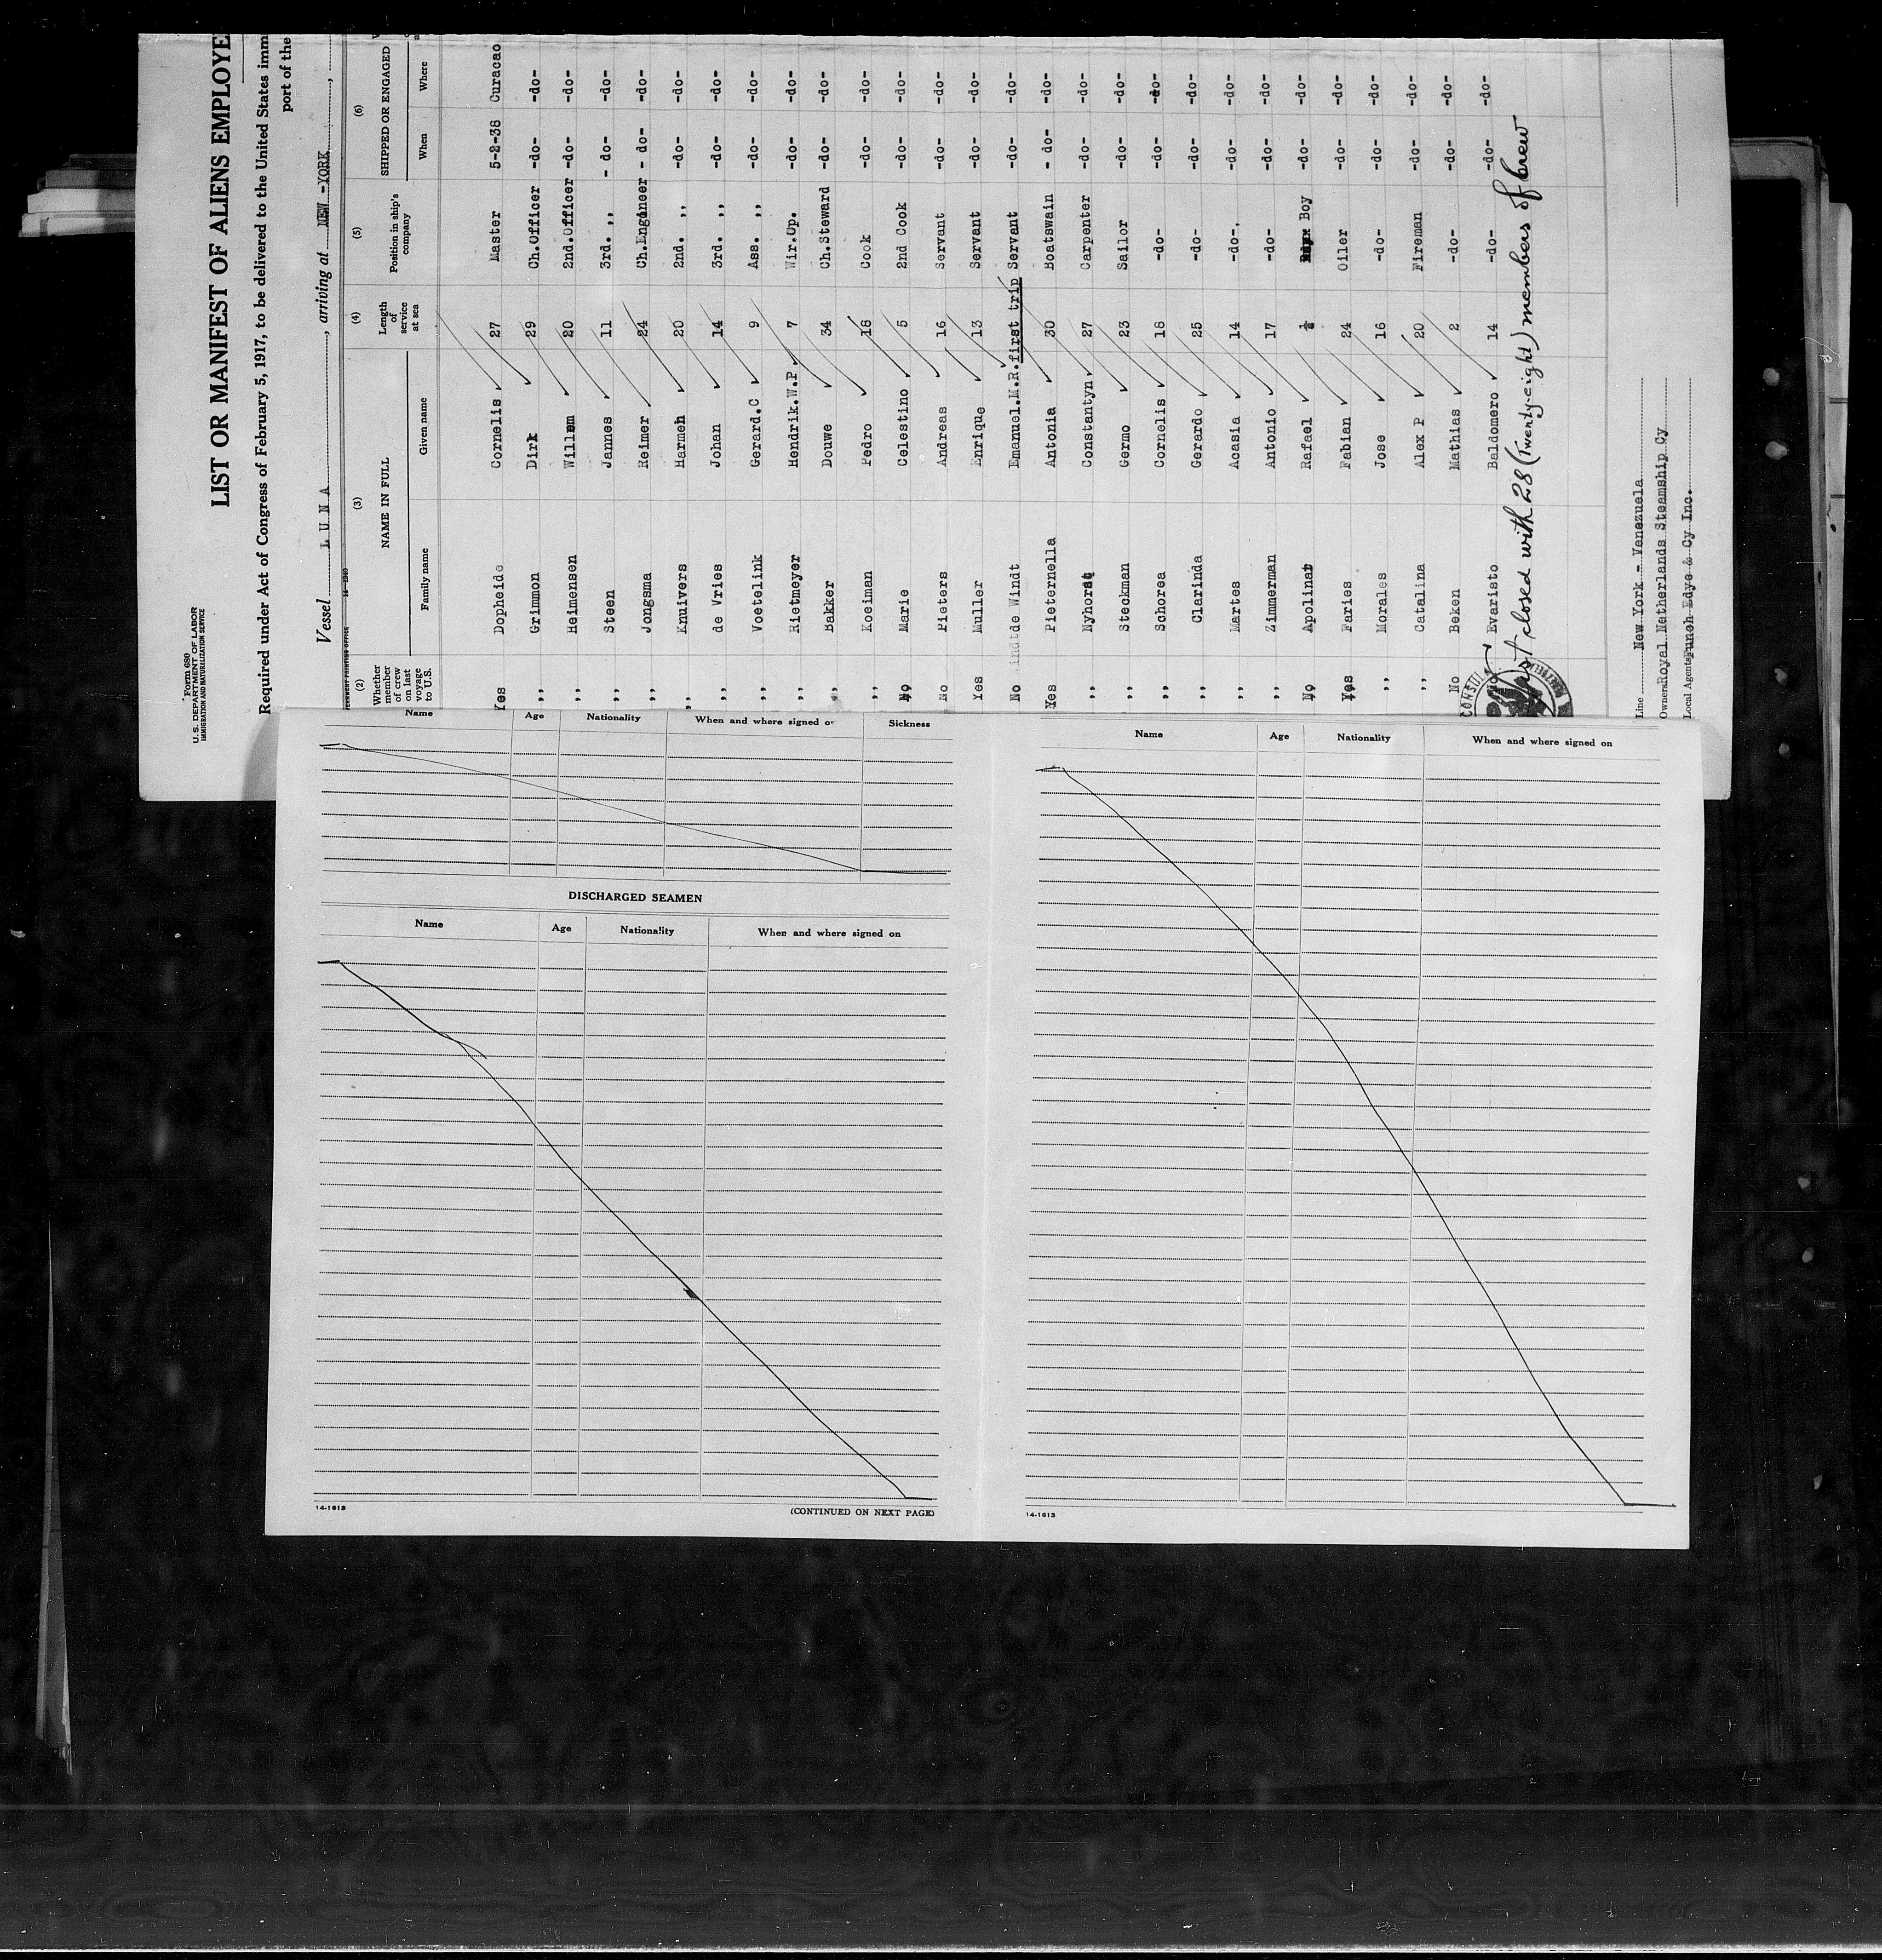 Form 680
U. S. DEPARTMENT OF LABOR
IMMIGRATION AND NATURALIZATION SERVICE
LIST OR MANIFEST OF ALIENS EMPLOYE
Required under Act of Congress of February 5, 1917, to be delivered to the United States imm
port of the
Vessel L U N A , arriving at NEW -YORK ,
(2) (3) (4) (5) (6)
Whether member of crew on last voyage to U.S. NAME IN FULL Length of service at sea Position in ship's company SHIPPED OR ENGAGED
Family name Given name When Where
Yes Dopheide Cornelis 27 Master 5-2-38 Curacao
,, Grimmon Dirk 29 Ch.Officer -do- -do-
,, Heimensen Willem 20 2nd.Officer -do- -do-
,, Steen Jannes 11 3rd. ,, - do- -do-
,, Jongsma Reimer 24 Ch.Engineer - do- -do-
,, Knuivers Harmen 20 2nd. ,, -do- -do-
,, de Vries Johan 14 3rd. ,, -do- -do-
,, Voetelink Gerard.C 9 Ass. ,, -do- -do-
,, Rietmeyer Hendrik.W.P. 7 Wir.Op. -do- -do-
,, Bakker Douwe 34 Ch.Steward -do- -do-
,, Koeiman Pedro 18 Cook -do- -do-
No Marie Celestino 5 2nd Cook -do- -do-
No Pieters Andreas 16 Servant -do- -do-
Yes Muller Enrique 13 Servant -do- -do-
No de Windt Emanuel.M.R. first trip Servant -do- -do-
Yes Pieternella Antonia 30 Boatswain - do- -do-
,, Nyhorst Constantyn 27 Carpenter -do- -do-
,, Steckman Germo 23 Sailor -do- -do-
,, Schorea Cornelis 18 -do- -do- -do-
,, Clarinda Gerardo 25 -do- -do- -do-
,, Martes Acasia 14 -do-. -do- -do-
,, Zimmerman Antonio 17 -do- -do- -do-
No Apolinar Rafael Boy -do- -do-
Yes Faries Fabian 24 Oiler -do- -do-
,, Morales Jose 16 -do- -do- -do-
,, Catalina Alex P 20 Fireman -do- -do-
No Beken Mathias 2 -do- -do- -do-
Evaristo Baldomero 14 -do- -do- -do-
closed with 28 (Twenty-eight) members of crew
CONSUL
Line New York - Venezuela
Owners Royal Netherlands Steamship Cy
Local Agents Funch Edye & Cy Inc.
Name Age Nationality When and where signed or Sickness
DISCHARGED SEAMEN
Name Age Nationality When and where signed on
14-1613 (CONTINUED ON NEXT PAGE)
Name Age Nationality When and where signed on
14-1613